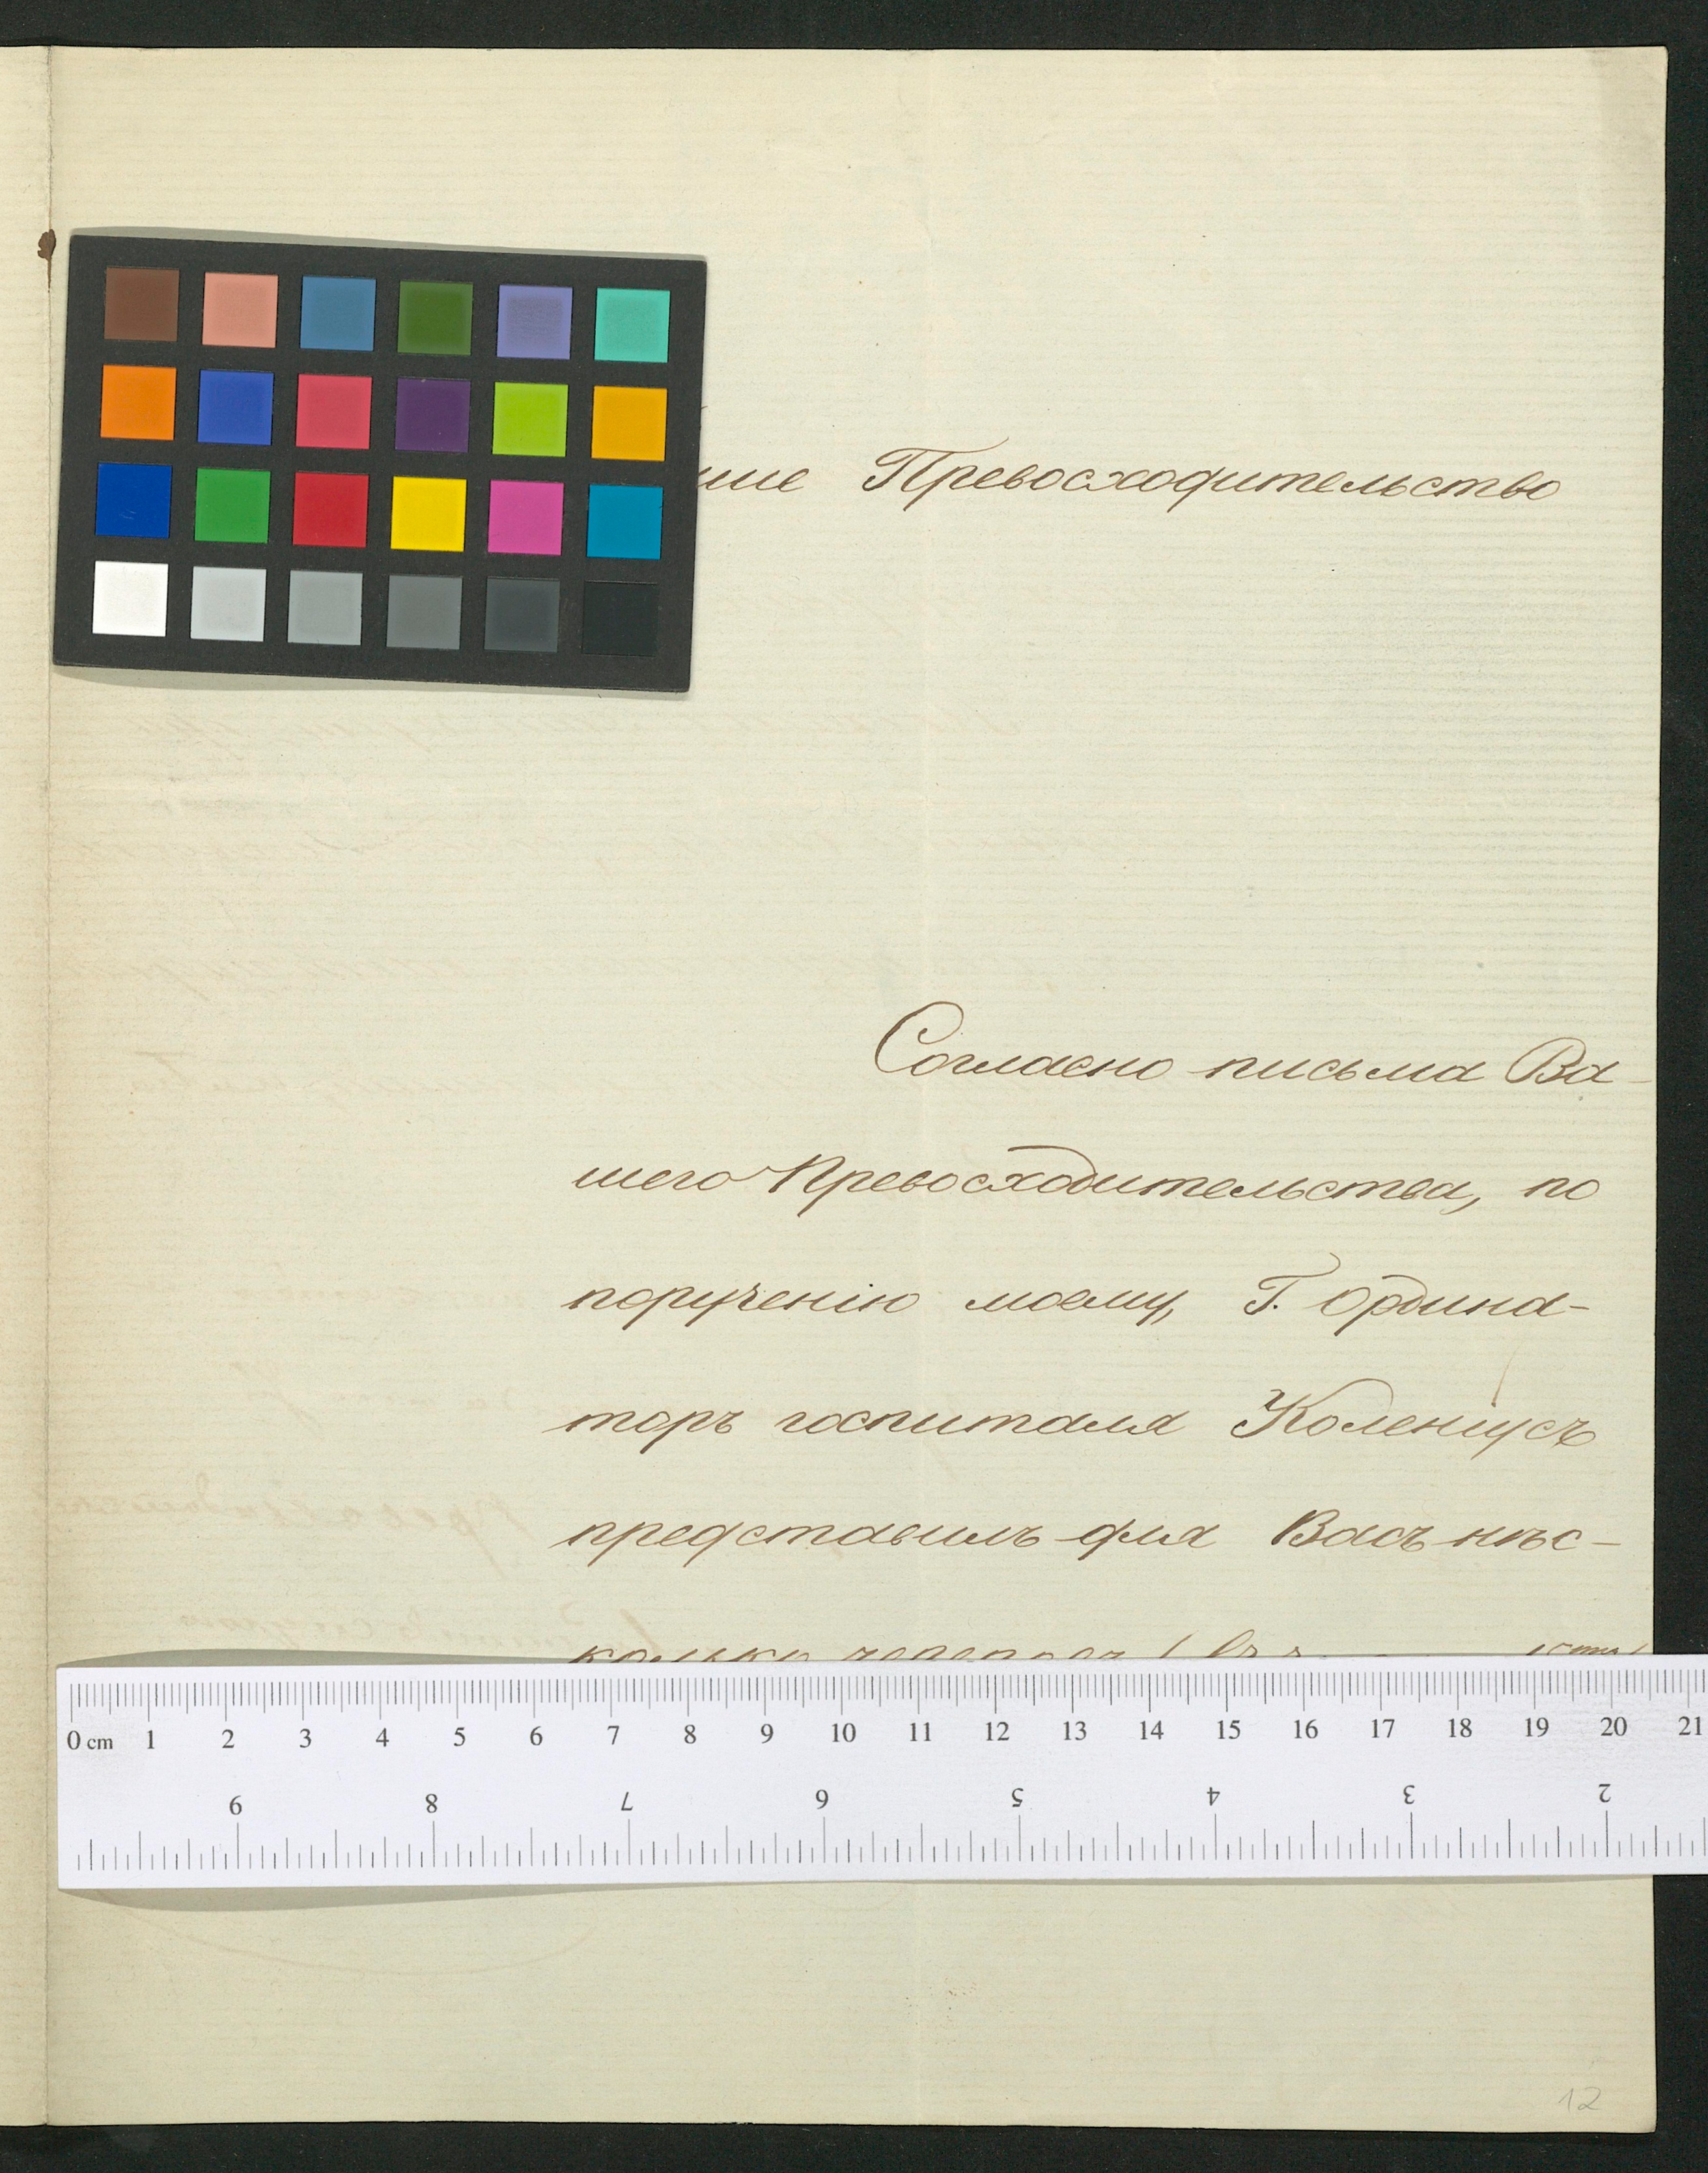 ше Превосходительство
Согласно письма Ва-
шего Превосходительства, по
порученію моему, Г. Ордина-
торъ госпиталя Колениусъ
представилъ для Васъ нѣс-
колько
0 cm 1 2 3 4 5 6 7 8 9 10 11 12 13 14 15 16 17 18 19 20 21
9 8 7 6 5 4 3 2
12